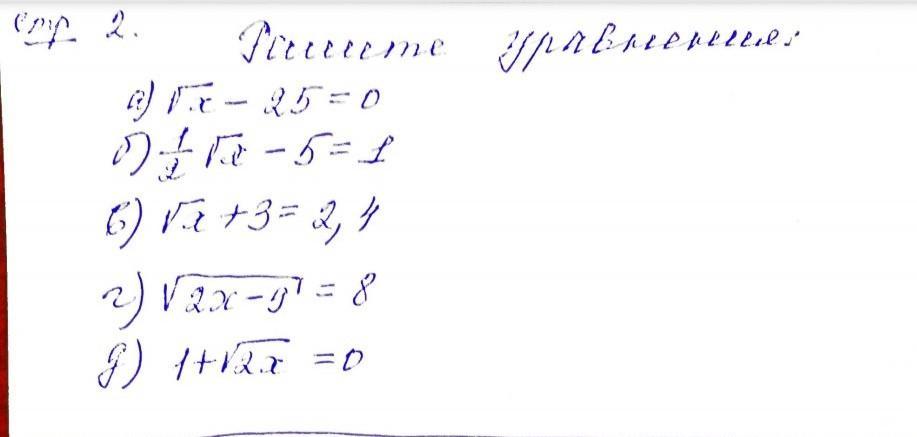 стр 2.
Решите уравнения:
а) √x - 25 = 0
б) 1/2 √x - 5 = 1
в) √x + 3 = 2,4
г) √(2x-9) = 8
д) 1+√2x = 0